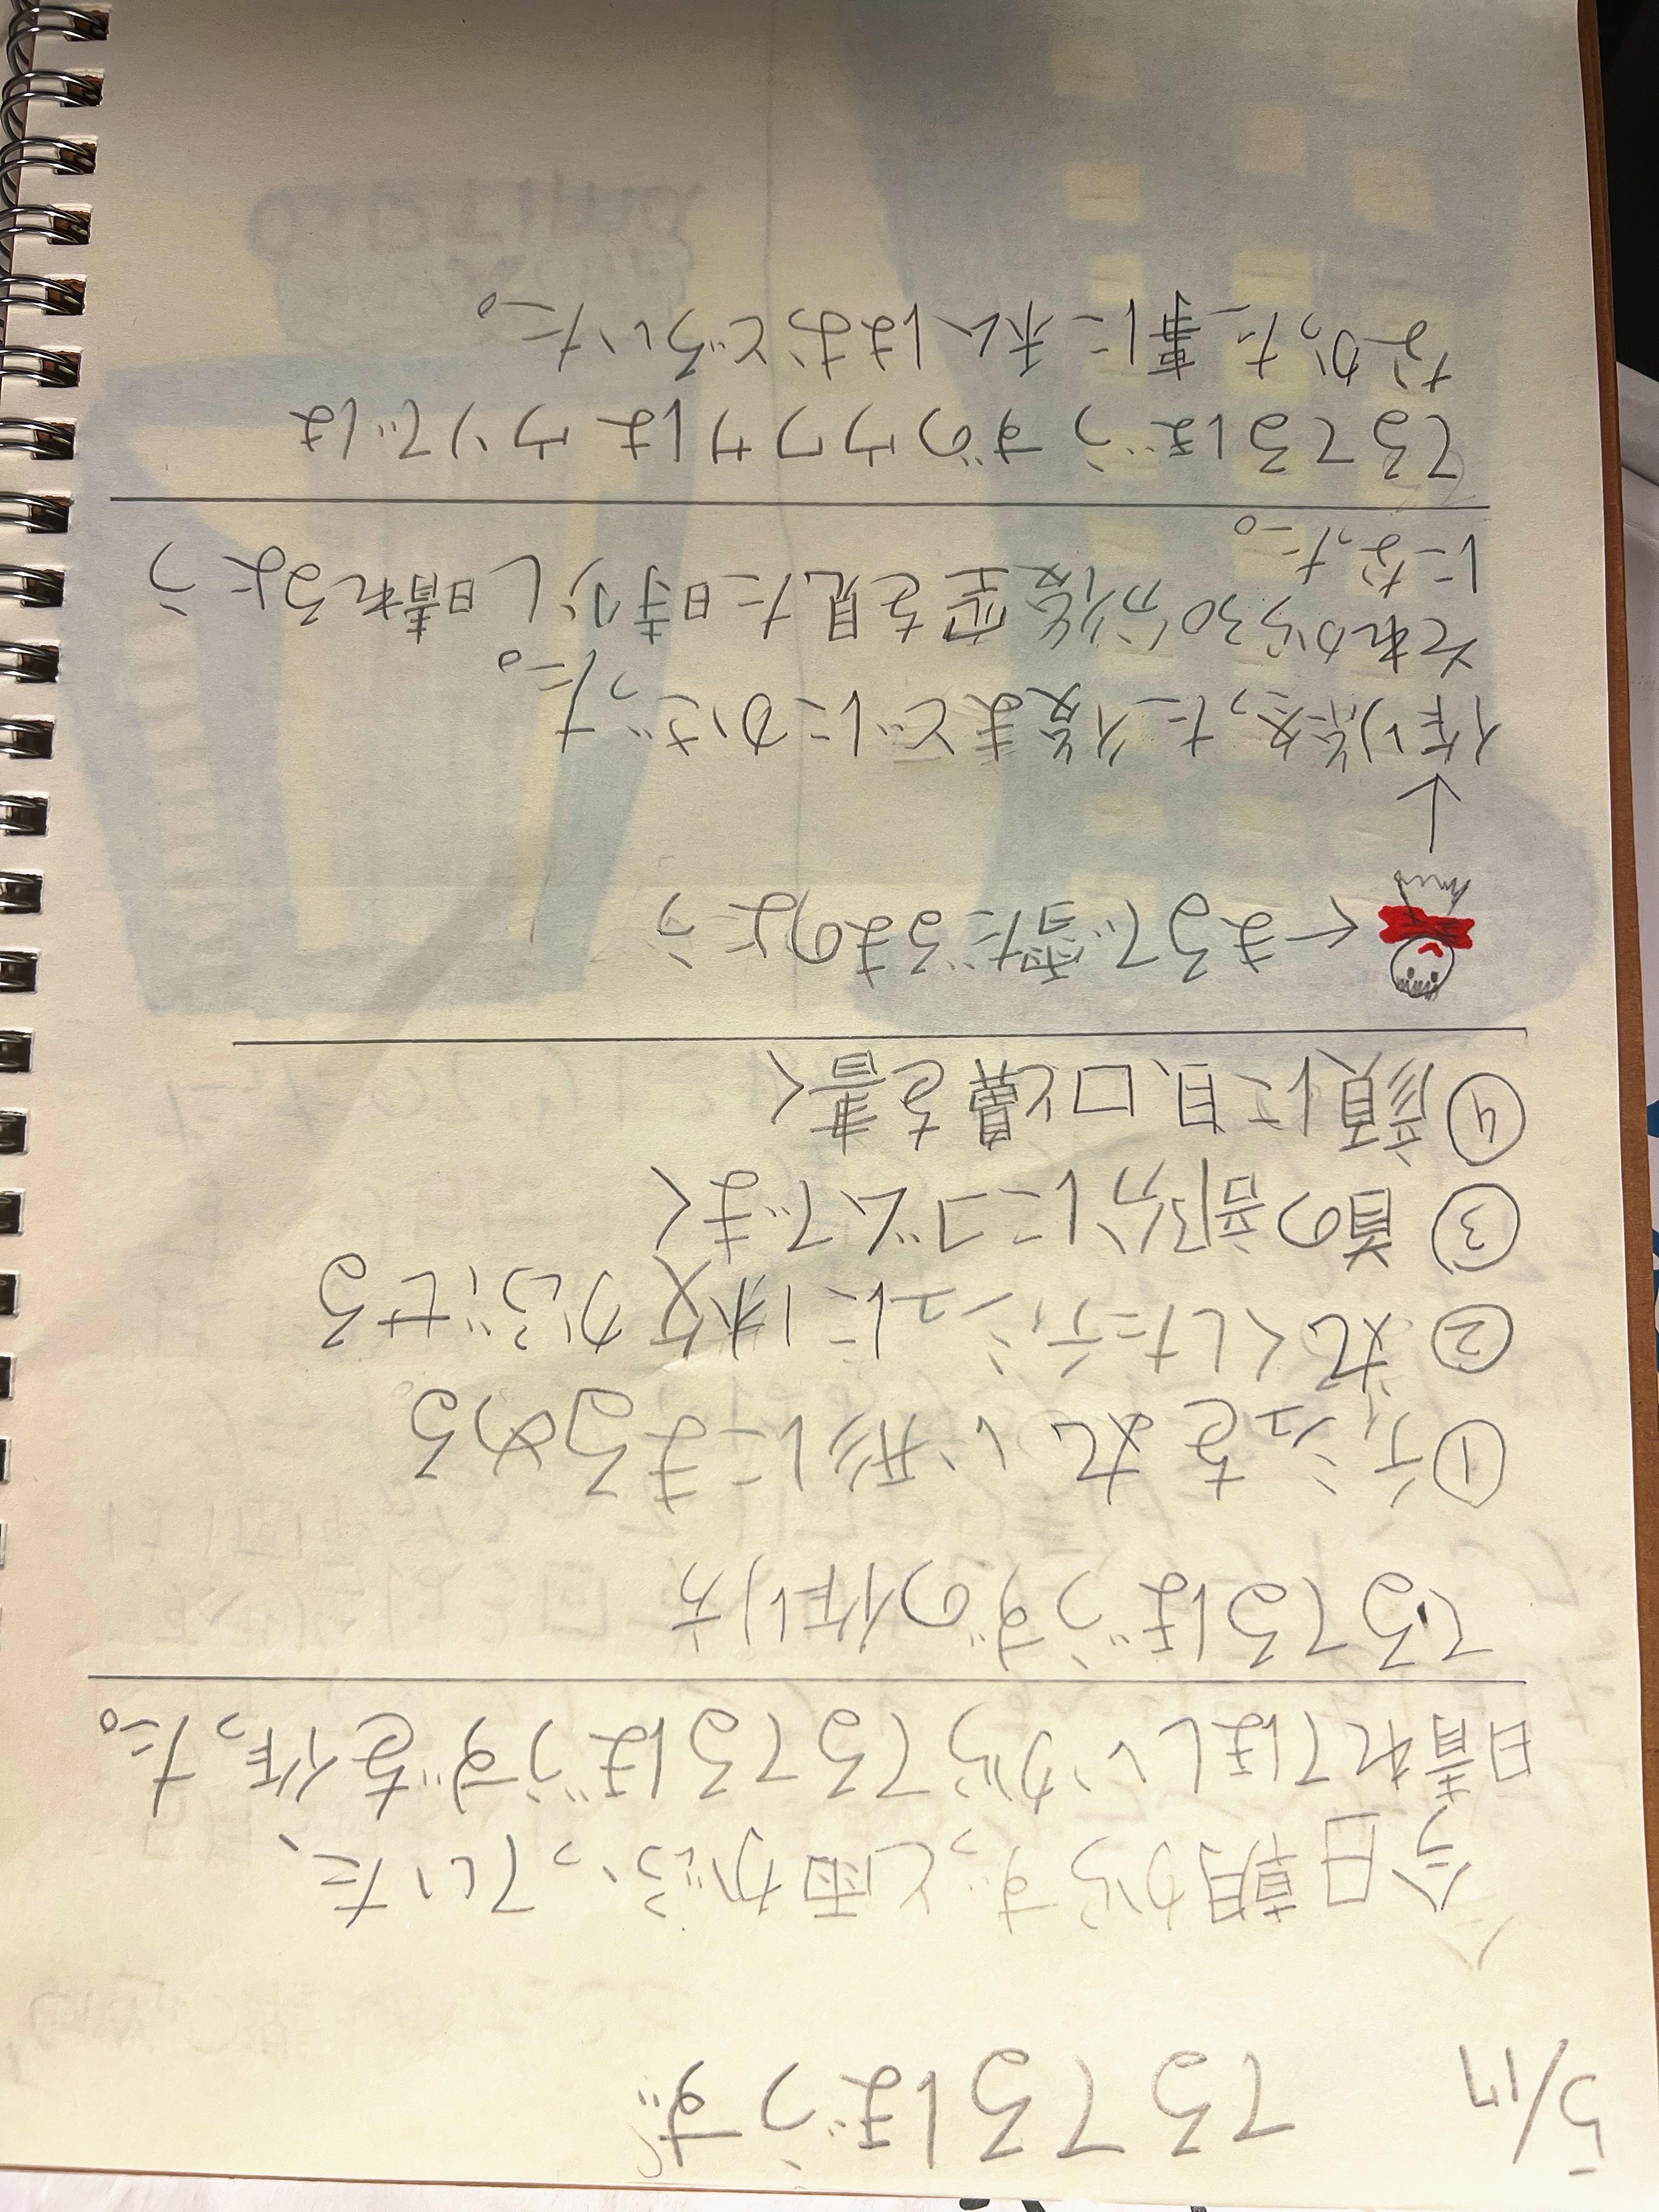 5/17 てるてるぼうず
今日朝からずっと雨がふっていた、
晴れてほしいからてるてるぼうずを作った。
てるてるぼうずの作り方
① ティシュを丸い形にまるめる
② 丸くしたティシュに1枚かぶせる
③ 首の部分にゴムでまく
④ 顔に目、口と鼻を書く
←まるで雪だるまのよう
↓
作り終えた後まどにかざった。
それから30分後空を見た時少し晴れるよう
になった。
てるてるぼうずのウワサはウソでは
なかった事に私はおどろいた。